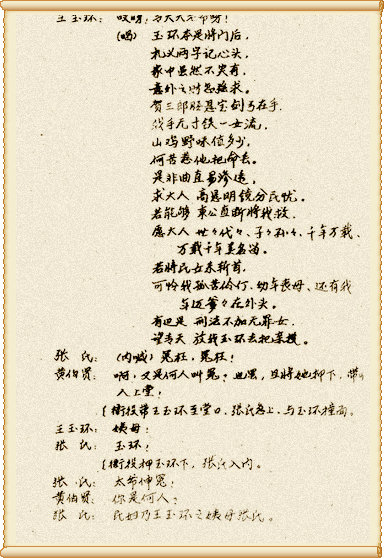 王玉环：哎呀！为大人不知呀！
(唱) 玉环本是将门后，
礼义两字记心头，
家中虽然不
意外之财怎强求。
贺三郎胚甚宝剑弓在手，
我手无寸铁一女流，
山鸡野味值多少，
何苦惹他把命丢。
是非曲直易渗透，
求大人 高悬明镜分民忧。
若能够 秉公直断将我救，
愿大人 世々代々、子々孙々、千年万载、
万载千年美名留。
若将民女来斩首，
可怜我孤苦伶仃、幼年丧母、还有我
年迈爹々在外头。
有道是 刑法不加无罪女，
望青天 放我玉环去把亲搜。
张 氏：(内喊) 冤枉，冤枉！
黄伯贤：啊，又是何人叫冤？也罢，且将她押下，带
人上堂！
〔衙役带王玉环至堂口，张氏急上，与玉环撞面。
王玉环：姨母！
张 氏：玉环！
〔衙役押玉环下，张氏入内。
张 氏：太爷伸冤！
黄伯贤：你是何人？
张 氏：民妇乃王玉环之姨母张氏。